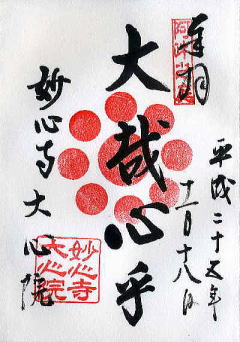 奉拝
平成二十五年
十二月十八日
大哉心乎
妙心寺大心院
妙心寺
大心院